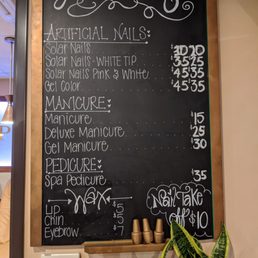 ARTIFICIAL NAILS
Solar Nails $30 20
Solar Nails - WHITE TIP $35 25
Solar Nails Pink & White $45 35
Gel Color $45 35
MANICURE
Manicure $15
Deluxe Manicure $25
Gel Manicure $30
PEDICURE
Spa Pedicure $35
Wax
Lip $5
Chin $5
Eyebrow $7
Nail Take
Off $10